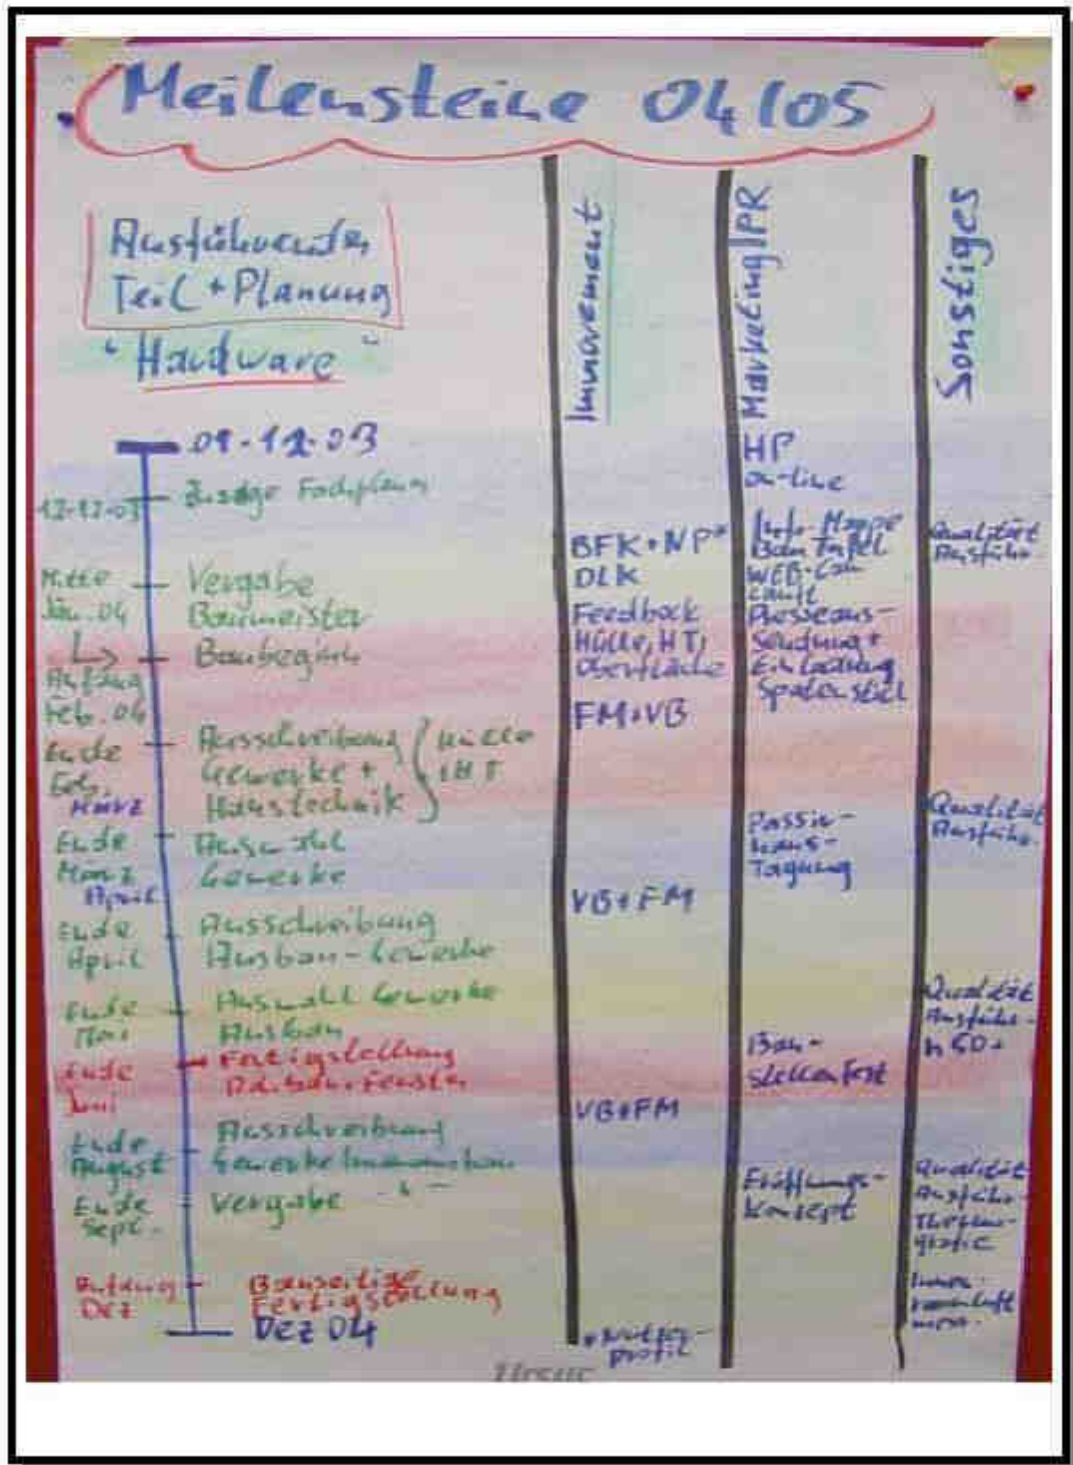 Meilensteine 04/05
Ausführender
Teil + Planung
"Hardware"
Innovement
Marketing/PR
Sonstiges
01-12-03
12-12-03
Zusage Fachplaner
Mitte
Jän. 04
Vergabe
Baumeister
Anfang
Feb. 04
Baubeginn
Ende
Feb.
März
Ausschreibung
Gewerke +
Haustechnik
Hülle
+ HT
Ende
März
April
Auswahl
Gewerke
Ende
April
Ausschreibung
Ausbau-Gewerke
Ende
Mai
Auswahl Gewerke
Ausbau
Ende
Juni
Fertigstellung
Ende
August
Ausschreibung
Gewerke
Ende
Sept.
Vergabe - " -
Anfang
Dez
Bauseitige
Fertigstellung
Dez 04
BFK + NP*
DLK
Feedback
Hülle, HT,
Oberfläche
FM+VB
VB+FM
VB+FM
*Nutzer-
profil
HP
on-line
Info-Mappe
Bau Tafel
WEB-Cam
läuft
Presseaus-
sendung +
Einladung
Spatenstich
Passiv-
haus-
Tagung
Bau-
stellenfest
Eröffnungs-
konzept
Qualität
Ausführ.
Qualität
Ausführ.
Qualität
Ausführ.
n50+
Qualität
Ausführ.
Thermo-
grafie
Innen-
raumluft
mess.